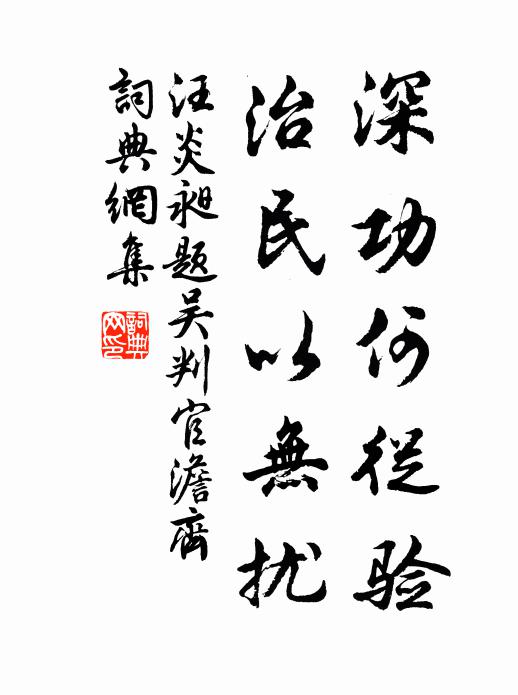 深功何從验
治民以無扰
汪炎昶题吴判官澹齋
詞典網集
詞典網印